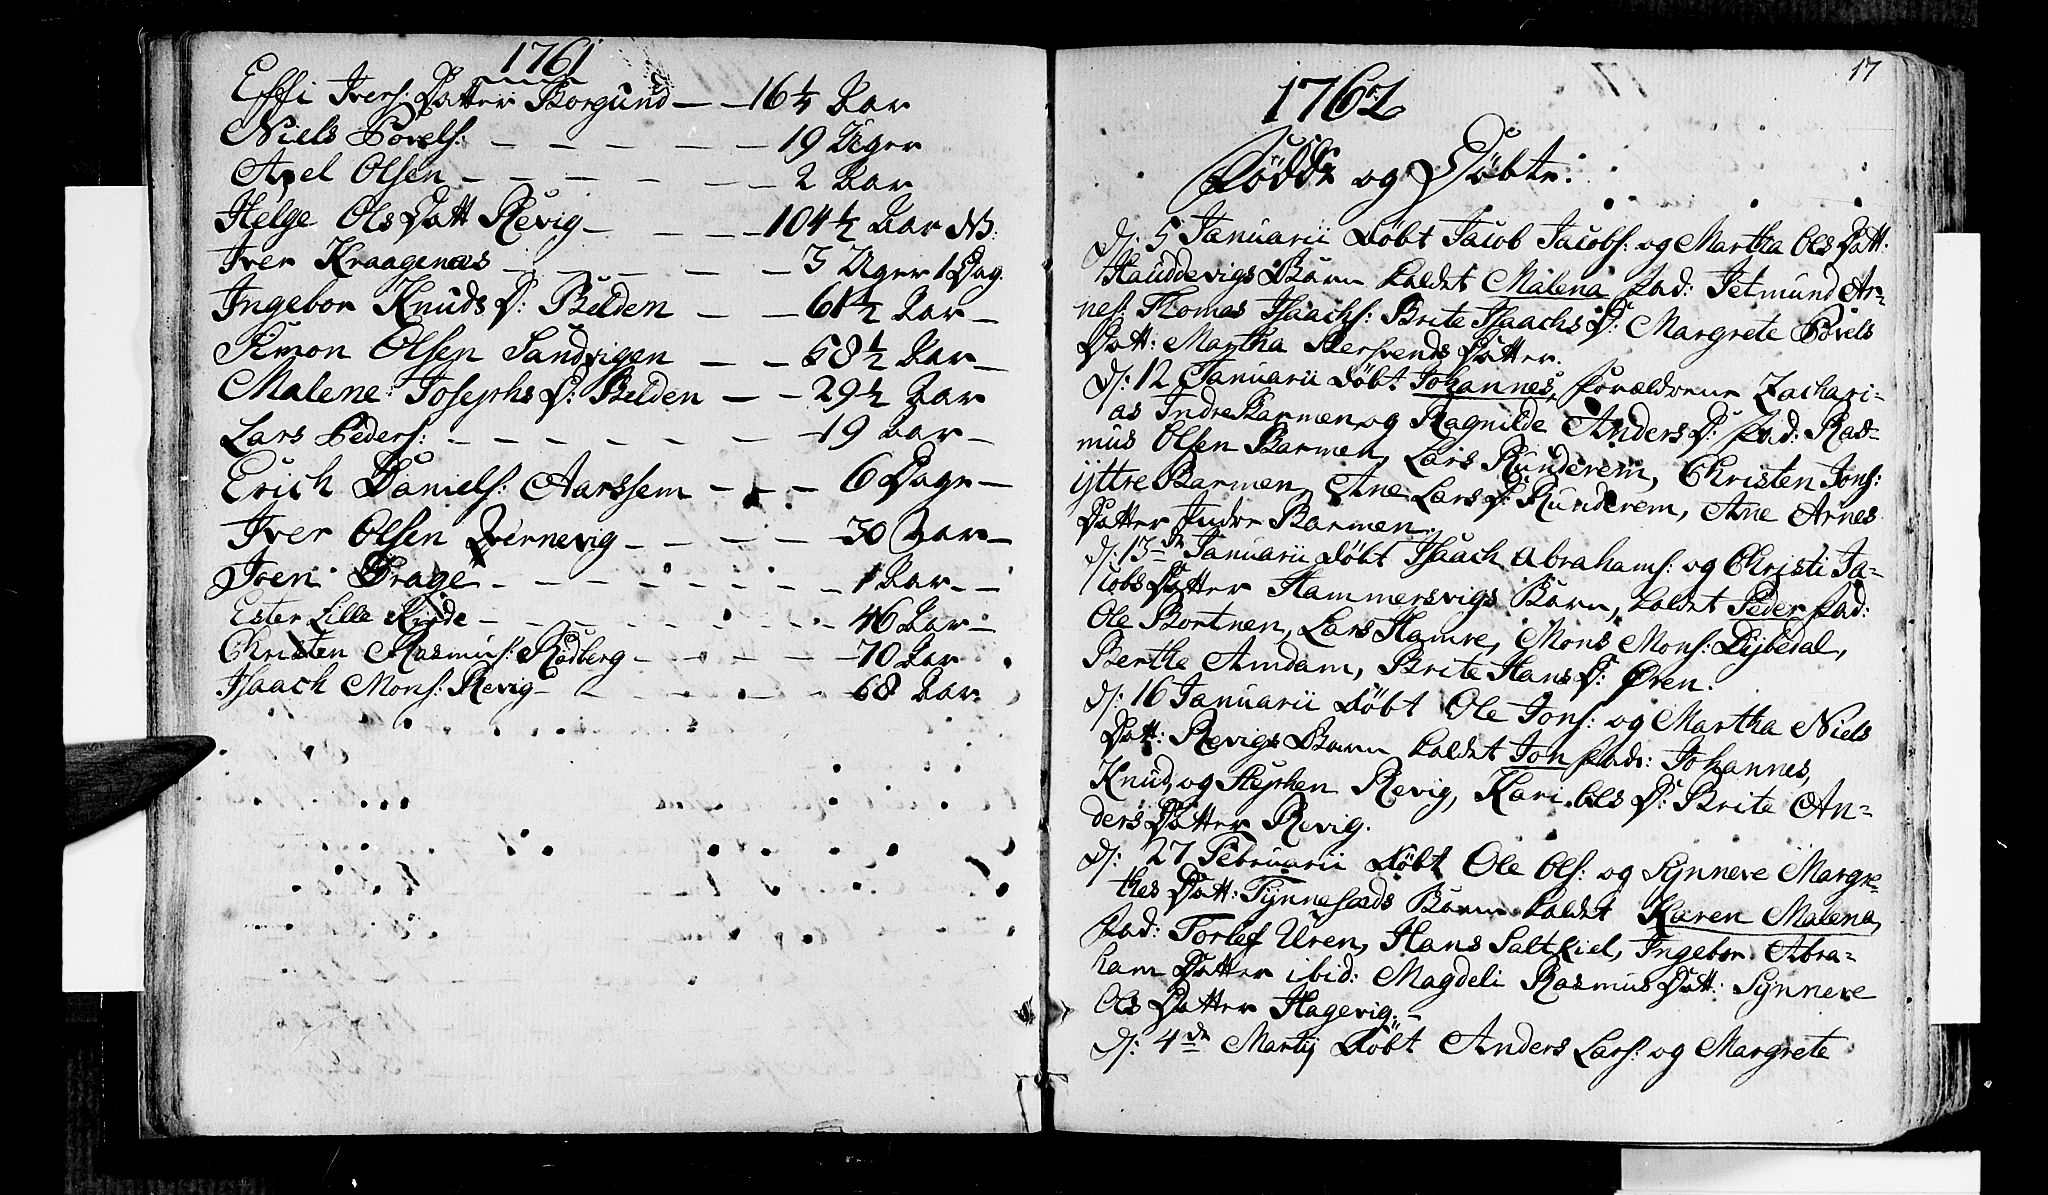 1761
Effi Ivers: Datter Borgund — — 16 1/4 Aar
Niels Povels: — — — — — 19 Uger
Axel Olsen — — — — — — 2 Aar
Helge Ols Datt Revig — — — — 104 1/2 Aar NB:
Iver Kraagenæs — — — — — 3 Uger 1 Dag.
Ingebor Knuds D: Belden — — 61 1/2 Aar —
Simon Olsen Sandvigen — — 58 1/2 Aar —
Malene: Josephs D: Belden — — 29 1/2 Aar
Lars Peders: — — — — — — 19 Aar —
Erich Daniels: Aarssem — — — 6 Dage —
Iver Olsen Qvernevig — — — — 30 Aar —
Iven Drage — — — — — — 1 Aar —
Ester Lille Riise — — — — — 46 Aar —
Christen Rasmus: Rødberg — — — — 70 Aar
Isaach Mons: Revig — — — — 68 Aar
17
1762
Fødde og Døbte:
d: 5 Januarii Døbt Jacob Jacobs: og Martha Ols Datt:
Hauddevigs Barn kaldet Malena Fad: Jetmund Ar=
nes: Thomas Isaachs: Brite Isaachs D: Margrete Povels
Datt: Martha Hersvends Datter.
d: 12 Januarii Døbt Johannes, Forældrene Zachari=
as Indre Barmen og Ragnilde Anders D: Fad: Ras=
mus Olsen Barmen, Lars Runderem, Christen Jons:
ijttre Barmen, Ane Lars D: Runderem, Ane Arnes
Datter Indre Barmen.
d: 13de Januarii Døbt Isaach Abrahams: og Christi Ja=
cobs Datter Hammersvigs Barn, kaldet Peder Fad:
Ole Bortnen, Lars Hamre, Mons Mons: Dijbedal,
Berthe Amdam, Brite Hans D: Øren.
d: 16 Januarii Døbt Ole Jons: og Martha Niels
Datt: Revigs Barn kaldet Jon Fad: Johannes,
Knud, og Stephen Revig, Kari Ols D: Brite An=
ders Datter Revig.
d: 27 Februarii Døbt Ole Ols: og Synneve Margre=
thes Datt: Tynnesæds Barn kaldet Karen Malena,
Fad: Torlef Uren, Hans Saltkiel, Ingebor Abra=
ham Datter ibid: Magdeli Rasmus Datt: Synneve
Ols Datter Hagevig. —
d: 4de Martij Døbt Anders Lars: og Margrete